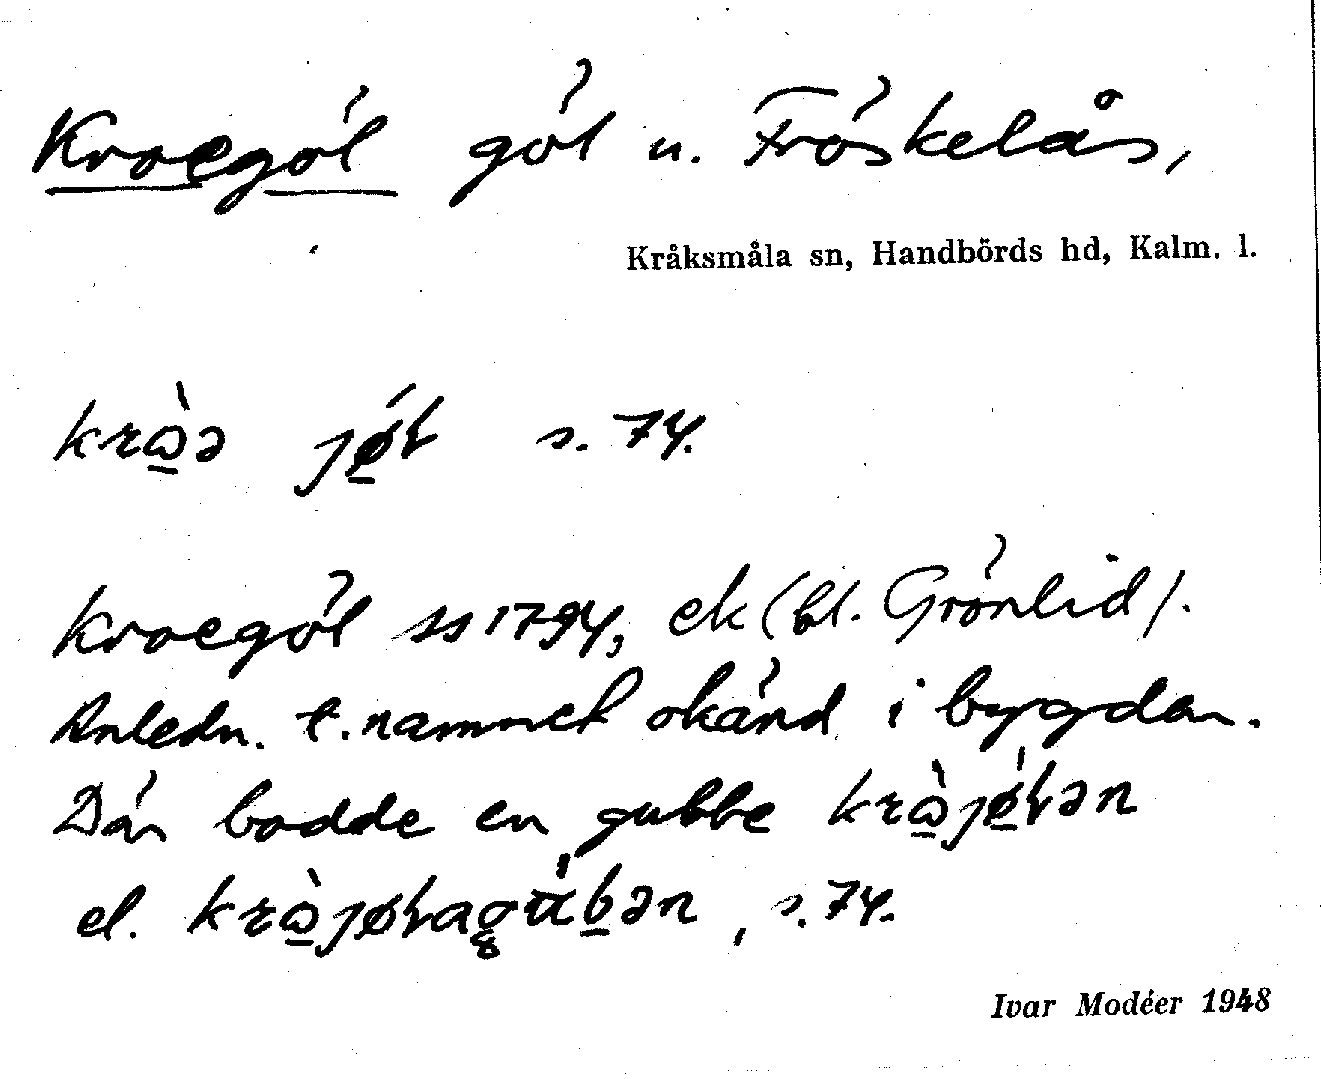 Kroegöl göl u. Fröskelås,
Kråksmåla sn, Handbörds hd, Kalm. l.
s. 74.
Kroegöl ss 1794, ek (bl. Grönlid).
Anledn. t. namnet okänd i bygden.
Där bodde en gubbe
el. , s. 74.
Ivar Modéer 1948